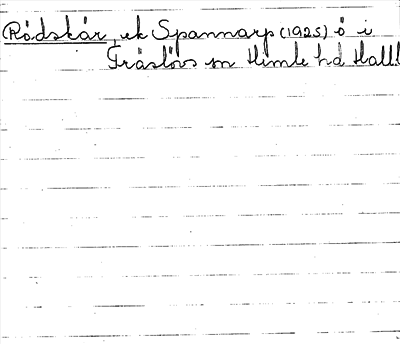 Rödskär, ek Spannarp (1925) ö i
Träslövs sn Himle hd Hall!